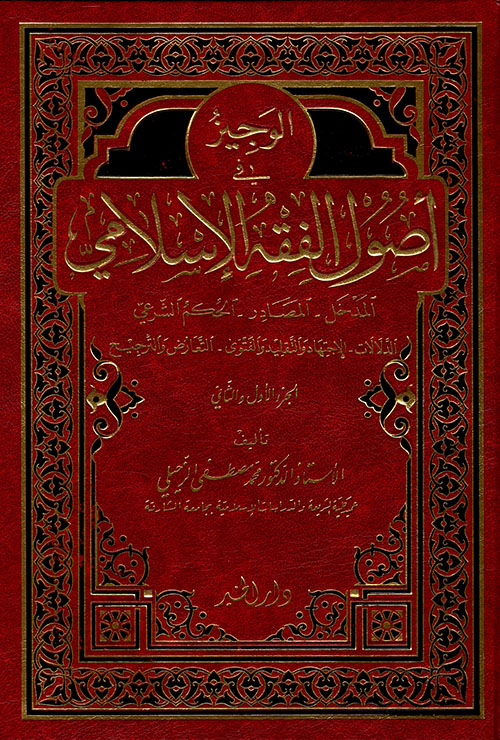 الوجيز
في
أصول الفقه الإسلامي
المدخل - المصادر - الحكم الشرعي
الدلالات - الاجتهاد والتقليد والفتوى - التعارض والترجيح
الجزء الأول والثاني
تأليف
الأستاذ الدكتور محمد مصطفى الزحيلي
عميد كلية الشريعة والدراسات الإسلامية بجامعة الشارقة
دار الخير